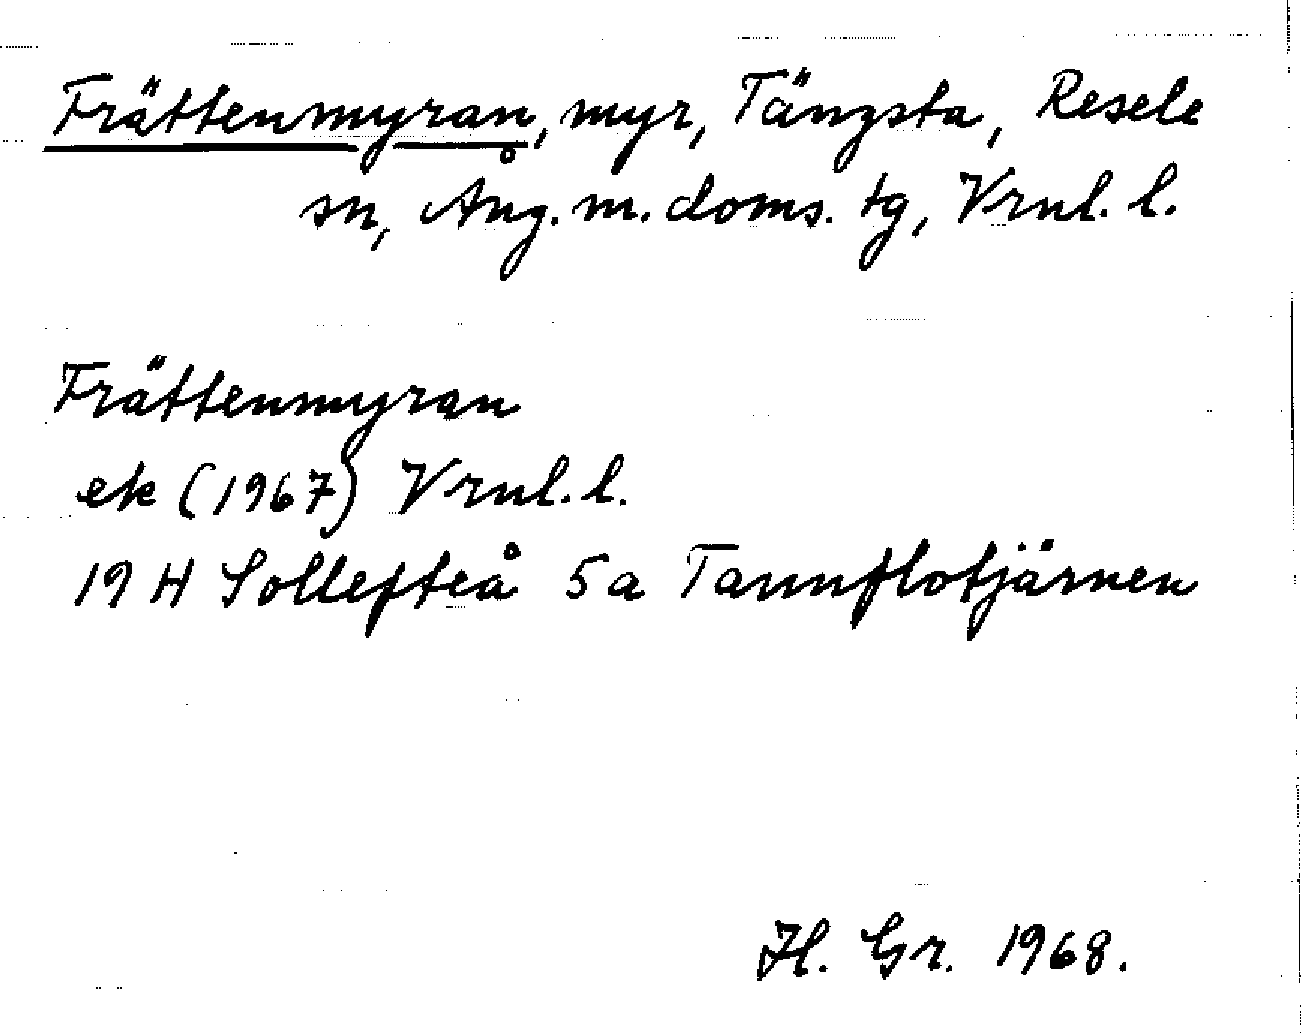 Frättenmyran, myr, Tängsta, Resele
sn, Ång. m. doms. tg, Vrnl. l.
Frättenmyran
ek (1967) Vrnl. l.
19 H Sollefteå 5a Tannflotjärnen
H. Gr. 1968.